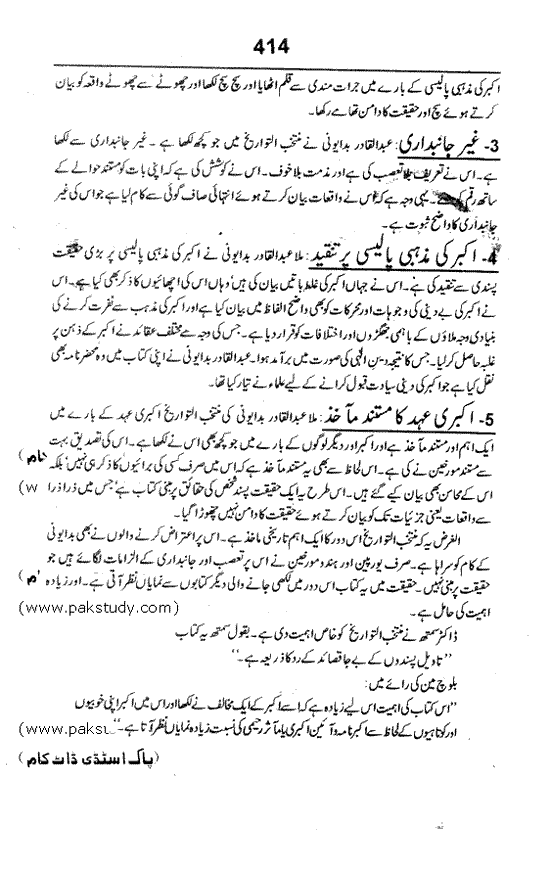 414
اکبر کی مذہبی پالیسی کے بارے میں جرات مندی سے قلم اٹھایا اور سچ سچ لکھا اور چھوٹے سے چھوٹے واقعہ کو بیان
کرتے ہوئے سچ اور حقیقت کا دامن تھامے رکھا۔
3- غیر جانبداری: عبدالقادر بدایونی نے منتخب التواریخ میں جو کچھ لکھا ہے۔ غیر جانبداری سے لکھا
ہے۔ اس نے تعریف بلا تعصب کی ہے اور مذمت بلاخوف۔ اس نے کوشش کی ہے کہ اپنی بات کو مستند حوالے کے
ساتھ رقم کرے۔ یہی وجہ ہے کہ اس نے واقعات بیان کرتے ہوئے انتہائی صاف گوئی سے کام لیا ہے جو اس کی غیر
جانبداری کا واضح ثبوت ہے۔
4- اکبر کی مذہبی پالیسی پر تنقید: ملا عبدالقادر بدایونی نے اکبر کی مذہبی پالیسی پر بڑی حقیقت
پسندی سے تنقید کی ہے۔ اس نے جہاں اکبر کی غلط باتیں بیان کی ہیں وہاں اس کی اچھائیوں کا ذکر بھی کیا ہے۔ اس
نے اکبر کی بے دینی کی وجوہات اور محرکات کو بھی واضح الفاظ میں بیان کیا ہے اور اکبر کی مذہب سے نفرت کرنے کی
بنیادی وجہ ملاؤں کے باہمی جھگڑوں اور اختلافات کو قرار دیا ہے۔ جس کی وجہ سے مختلف عقائد نے اکبر کے ذہن پر
غلبہ حاصل کر لیا۔ جس کا نتیجہ دین الٰہی کی صورت میں برآمد ہوا۔ عبدالقادر بدایونی نے اپنی کتاب میں وہ محضر نامہ بھی
نقل کیا ہے جو اکبر کی دینی سیادت قبول کرانے کے لیے علماء نے تیار کیا تھا۔
5- اکبری عہد کا مستند مآخذ: ملا عبدالقادر بدایونی کی منتخب التواریخ اکبری عہد کے بارے میں
ایک اہم اور مستند مآخذ ہے اور اکبر اور دیگر لوگوں کے بارے میں جو کچھ بھی اس نے لکھا ہے۔ اس کی تصدیق بہت
سے مستند مورخین نے کی ہے۔ اس لحاظ سے بھی یہ مستند مآخذ ہے کہ اس میں صرف کسی کی برائیوں کا ذکر ہی نہیں بلکہ
اس کے محاسن بھی بیان کیے گئے ہیں۔ اس طرح یہ ایک حقیقت پسند شخص کی حقائق پر مبنی کتاب ہے' جس میں ذرا ذرا
سے واقعات یعنی جزئیات تک کو بیان کرتے ہوئے حقیقت کا دامن نہیں چھوڑا گیا۔
الغرض یہ کہ منتخب التواریخ اس دور کا ایک اہم تاریخی ماخذ ہے۔ اس پر اعتراض کرنے والوں نے بھی بدایونی
کے کام کو سراہا ہے۔ صرف یورپین اور ہندو مورخین نے اس پر تعصب اور جانبداری کے الزامات لگائے ہیں جو
حقیقت پر مبنی نہیں۔ حقیقت میں یہ کتاب اس دور میں لکھی جانے والی دیگر کتابوں سے نمایاں نظر آتی ہے۔ اور زیادہ
اہمیت کی حامل ہے۔
(www.pakstudy.com)
ڈاکٹر سمتھ نے منتخب التواریخ کو خاص اہمیت دی ہے۔ بقول سمتھ یہ کتاب
"تاویل پسندوں کے بے جا قصائد کے رد کا ذریعہ ہے۔"
بلوچ مین کی رائے میں:
"اس کتاب کی اہمیت اس لیے زیادہ ہے کہ اسے اکبر کے ایک مخالف نے لکھا اور اس میں اکبر اپنی خوبیوں
اور کوتاہیوں کے لحاظ سے اکبر نامہ و آئین اکبری یا مآثر رحیمی کی نسبت زیادہ نمایاں نظر آتا ہے۔"
(www.paks
(پاک اسٹڈی ڈاٹ کام)